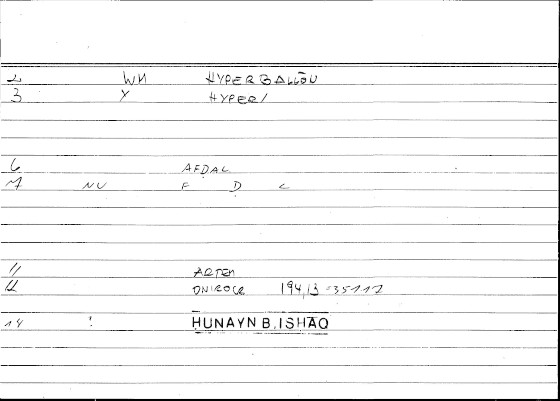 2 WN HYPERBALLŌN
3 Y HYPER/
6 AFDAL
7 NU F D L
11 ARTEM
12 ONIROCR 194,13
14 ! HUNAYN B. ISHAQ